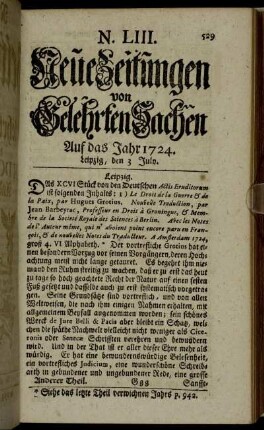 N. LIII. 529
Neue Zeitungen
von
Gelehrten Sachen
Auf das Jahr 1724.
Leipzig, den 3 July.
Leipzig.
DAs XCVI Stück von den Deutschen Actis Eruditorum
ist folgenden Inhalts: 1) Le Droit de la Guerre & de
la Paix, par Hugues Grotius. Nouvelle Traduction, par
Jean Barbeyrac, Professeur en Droit à Groningue, & Mem-
bre de la Societé Royale des Sciences à Berlin. Avec les Notes
de l'Auteur même, qui n' avoient point encore paru en Fran-
çois, & de nouvelles Notes du Traducteur. A Amsterdam 1724,
groß 4. VI Alphabeth. * Der vortrefliche Grotius hat ei-
nen besondern Vorzug vor seinen Vorgängern, deren Hoch-
achtung sonst nicht lange getauret. Es begehrt ihm nie-
mand den Ruhm streitig zu machen, daß er zu erst das heut
zu tage so hoch geachtete Recht der Natur auf einen festen
Fuß gesetzt und dasselbe auch zu erst systematisch vorgetra-
gen. Seine Grundsätze sind vortreflich, und von allen
Weltweisen, die nach ihm einigen Nahmen erhalten, mit
allgemeinem Beyfall angenommen worden; sein schönes
Werck de Jure Belli & Pacis aber bleibt ein Schatz, wel-
chen die späthe Nachwelt vielleicht nicht weniger als Cice-
ronis oder Senecæ Schrifften verehren und bewundern
wird. Und in der That ist er aller dieser Ehre mehr als
würdig. Er hat eine bewundernswürdige Belesenheit,
ein vortrefliches Judicium, eine wunderschöne Schreib-
arth in gebundener und ungebundener Rede, eine grosse
Anderer Theil. Ggg Sanfft-
* Siehe das letzte Theil verwichnen Jahrs p. 942.